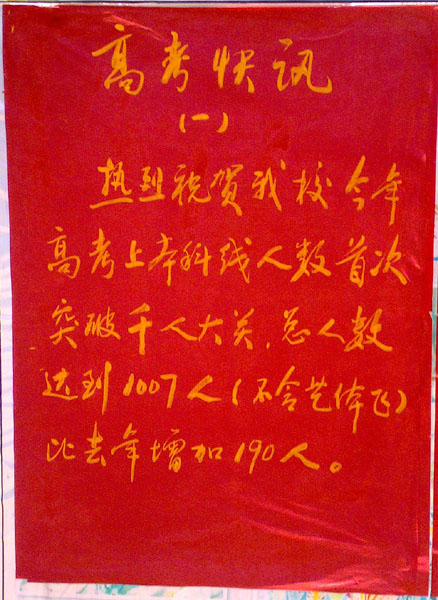 高考快讯
（一）
热烈祝贺我校今年
高考上本科线人数首次
突破千人大关，总人数
达到1007人（不含艺体飞）
比去年增加190人。